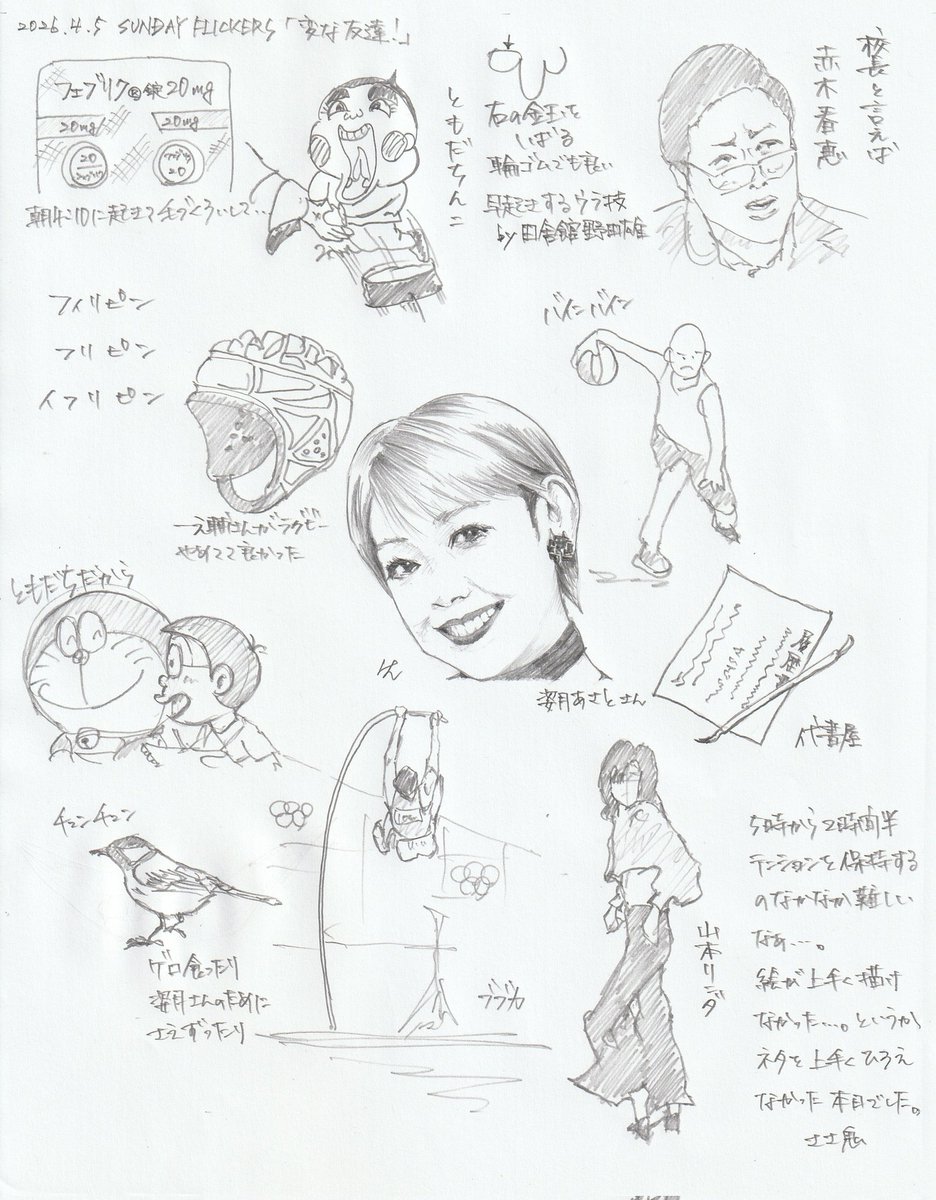 2026.4.5 SUNDAY FLICKERS「変な友達!」
フェブリク®錠20mg
20mg
20mg
20
20
朝4:10に起きて手づくろいして…
ともだちんこ
右の金玉を
しばる
輪ゴムでも良い
早起きするウラ技
by 田舎館野田雄
校長と言えば
赤木春恵
フィリピン
フリピン
イフリピン
一之輔さんがラグビー
やめてて良かった
バインバイン
ともだちだから
姿月あさとさん
履歴書
代書屋
チュンチュン
ゲロ食ったり
姿月さんのために
さえずったり
ブブカ
山本リンダ
5時から2時間半
テンションを保持する
のなかなか難しい
なぁ…。
絵が上手く描け
なかった…。というか
ネタを上手くひろえ
なかった本日でした。